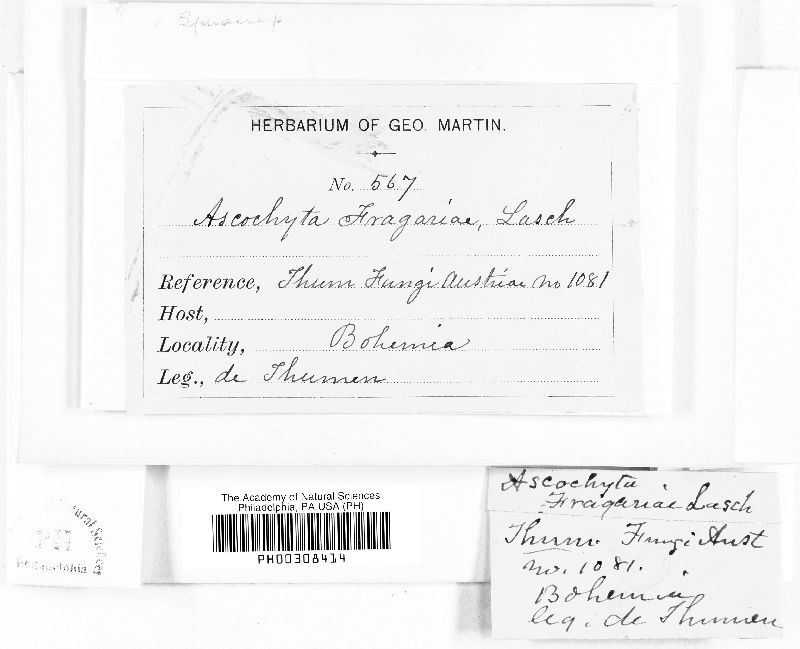 HERBARIUM OF GEO. MARTIN.
No. 567
Ascochyta Fragariae, Lasch
Reference, Thum Fungi Austriae no 1081
Host,
Locality, Bohemia
Leg., de Thumen
The Academy of Natural Sciences
Philadelphia, PA USA (PH)
PH00308414
PH
Philadelphia
Ascochyta
Fragariae Lasch
Thum. Fungi Aust
no. 1081.
Bohemia
leg. de Thumen